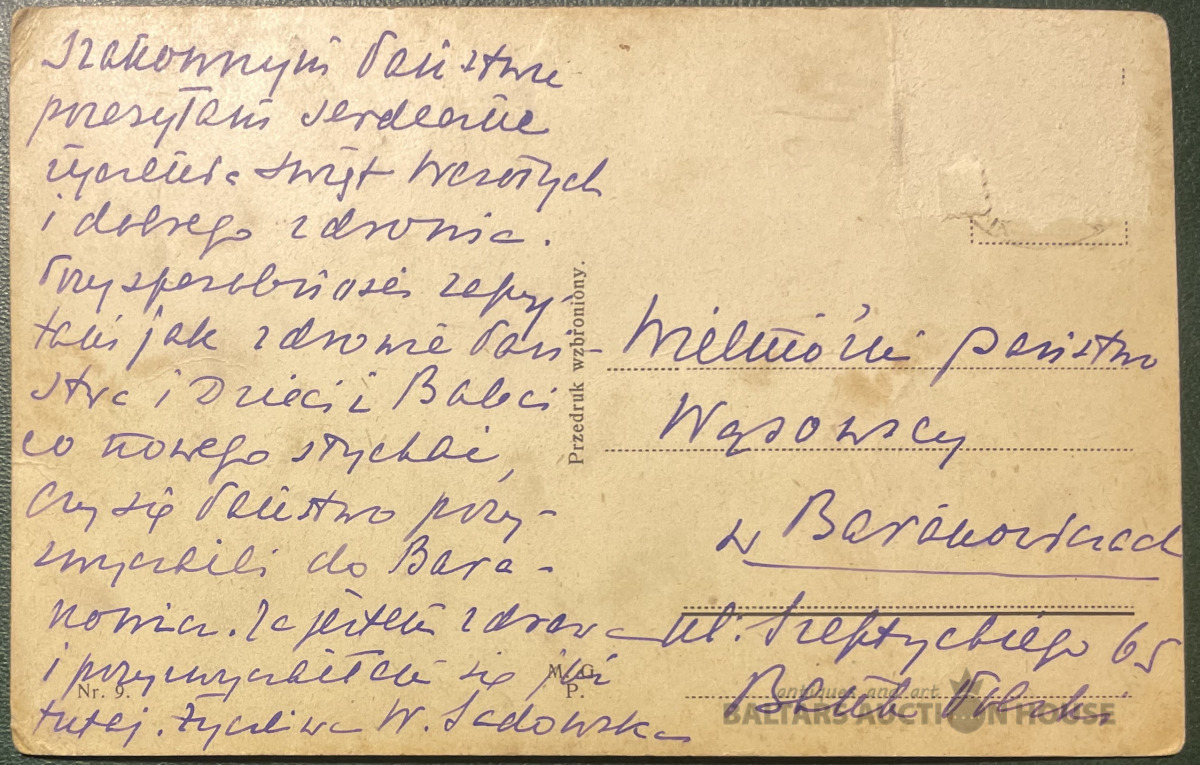 Szanownym Państwu
przesyłam serdeczne
życzenia Świąt Wesołych
i dobrego zdrowia.
Przy sposobności zapy-
tam jak zdrowie Pań-
stwa i Dzieci i Babci
co nowego słychać,
czy się Państwo przy-
zwyczaili do Bara-
nowicz. Ja jestem zdrowa
i przyzwyczaiłam się już
tutaj. Życzliwa W. Sadowska
Przedruk wzbroniony.
Nr. 9.
M. G.
P.
Wielmożni Państwo
Wąsowscy
w Baranowiczach
ul. Szeptyckiego 65
Bank Polski
antiques and art
BALTARS AUCTION HOUSE